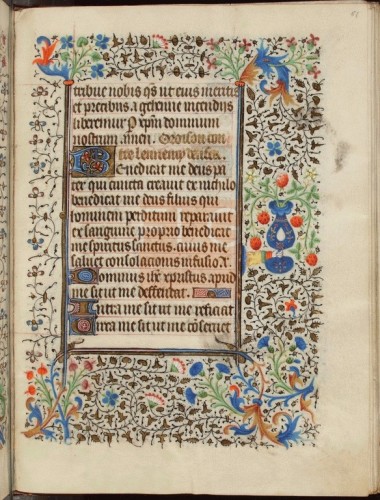 tribue nobis qs ut eius meritis
et precibus a gehenne incendijs
liberemur P xpm dominum
nostrum. amen. Oroison con
tre lennemy
Benedicat me deus pa
ter qui cuncta creavit ex nichilo
benedicat me deus filius qui
hominem perditum reparavit
ex sanguine proprio benedicat
me spiritus sanctus. cuius me
salvet consolacionis infusio
Dominus xpristus apud
me sit ut me deffendat.
Intra me sit ut me reficiat
Circa me sit ut me conservet